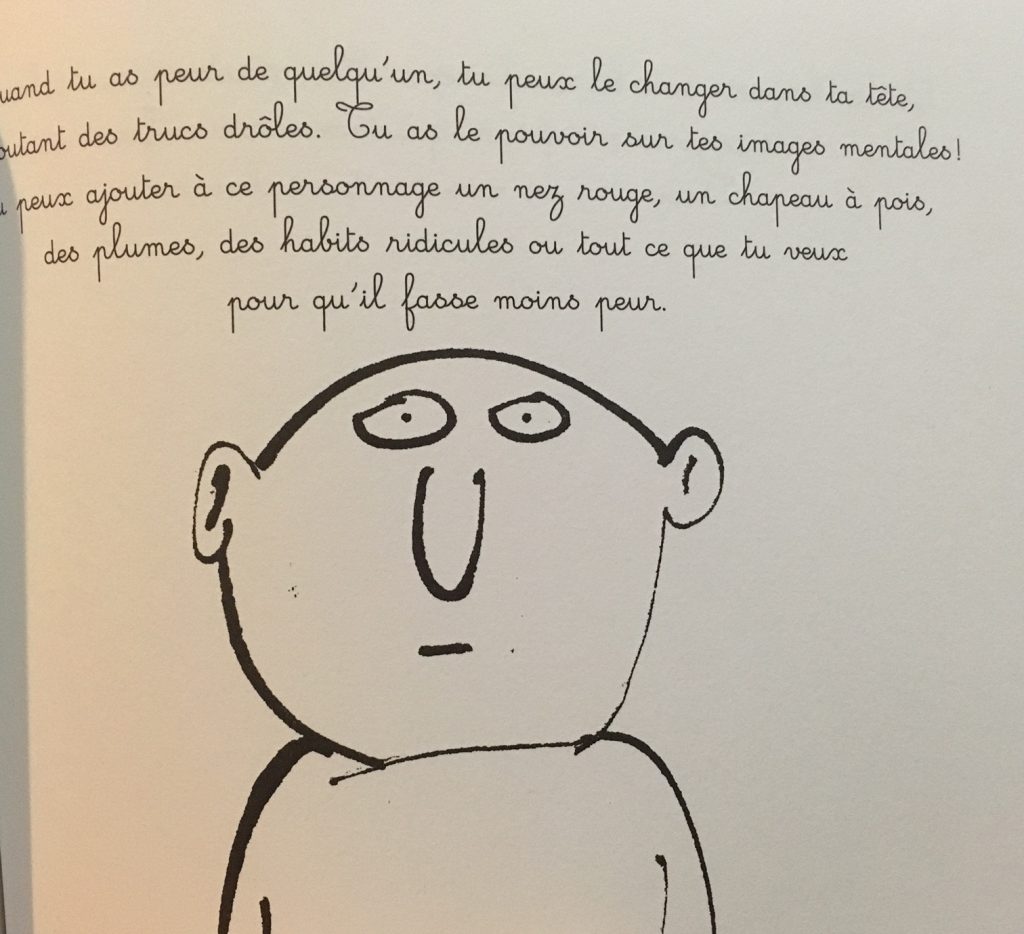 uand tu as peur de quelqu'un, tu peux le changer dans ta tête,
outant des trucs drôles. Tu as le pouvoir sur tes images mentales!
u peux ajouter à ce personnage un nez rouge, un chapeau à pois,
des plumes, des habits ridicules ou tout ce que tu veux
pour qu'il fasse moins peur.